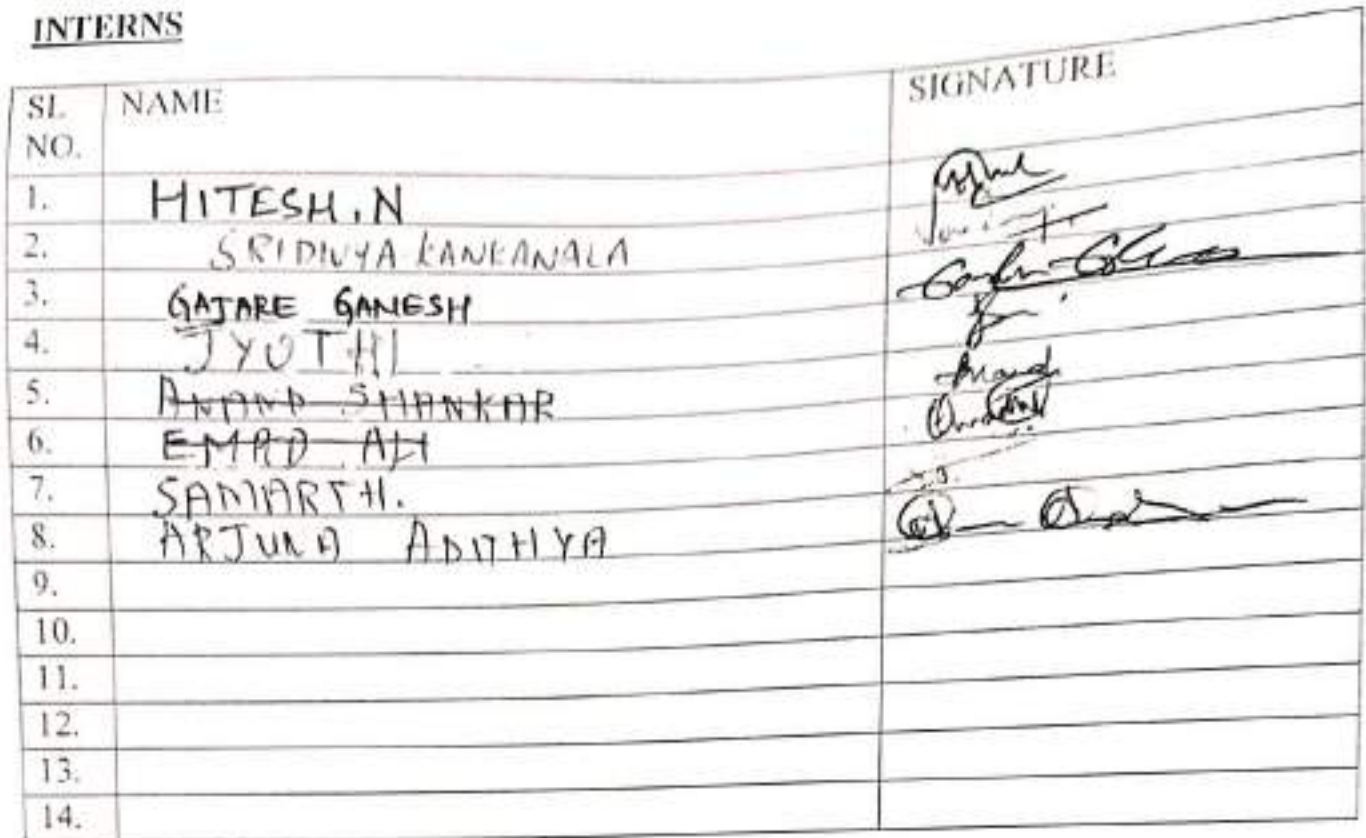 INTERNS
SL. NO. NAME SIGNATURE
1. HITESH.N
2. SRIDIVYA KANKANALA
3. GAJARE GANESH
4. JYOTHI
5. ANAND SHANKAR Anand
6. EMAD
7. SAMARTH.
8. ARJUNA ADITHYA
9.
10.
11.
12.
13.
14.